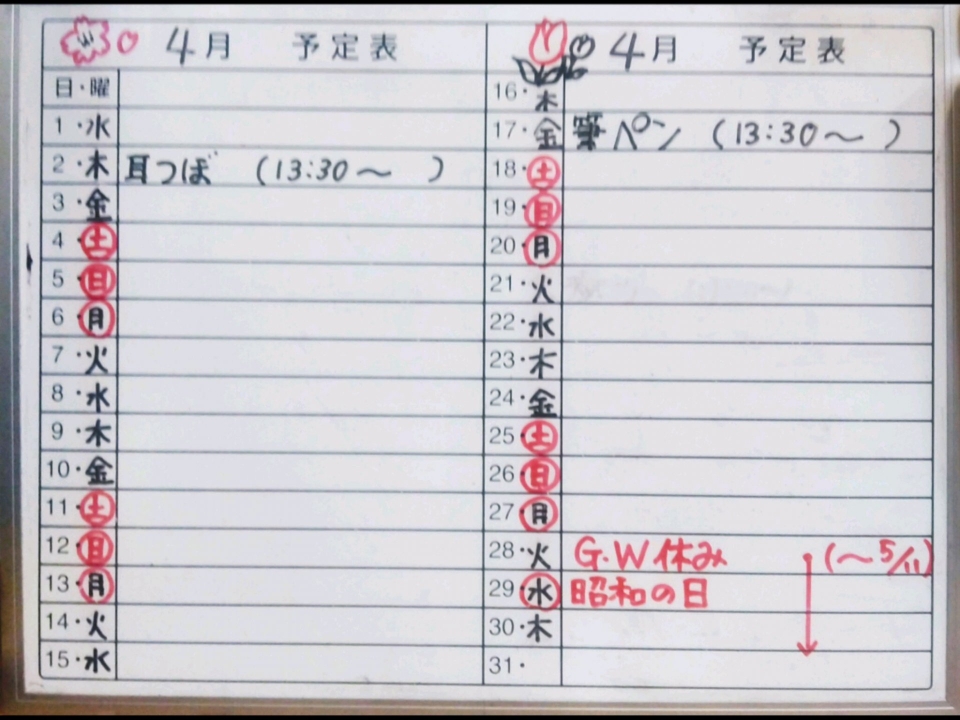 4月 予定表
日・曜
1・水
2・木 耳つぼ (13:30〜 )
3・金
4・土
5・日
6・月
7・火
8・水
9・木
10・金
11・土
12・日
13・月
14・火
15・水
4月 予定表
16・木
17・金 筆ペン (13:30〜 )
18・土
19・日
20・月
21・火
22・水
23・木
24・金
25・土
26・日
27・月
28・火 G.W休み (〜5/11)
29・水 昭和の日
30・木
31・